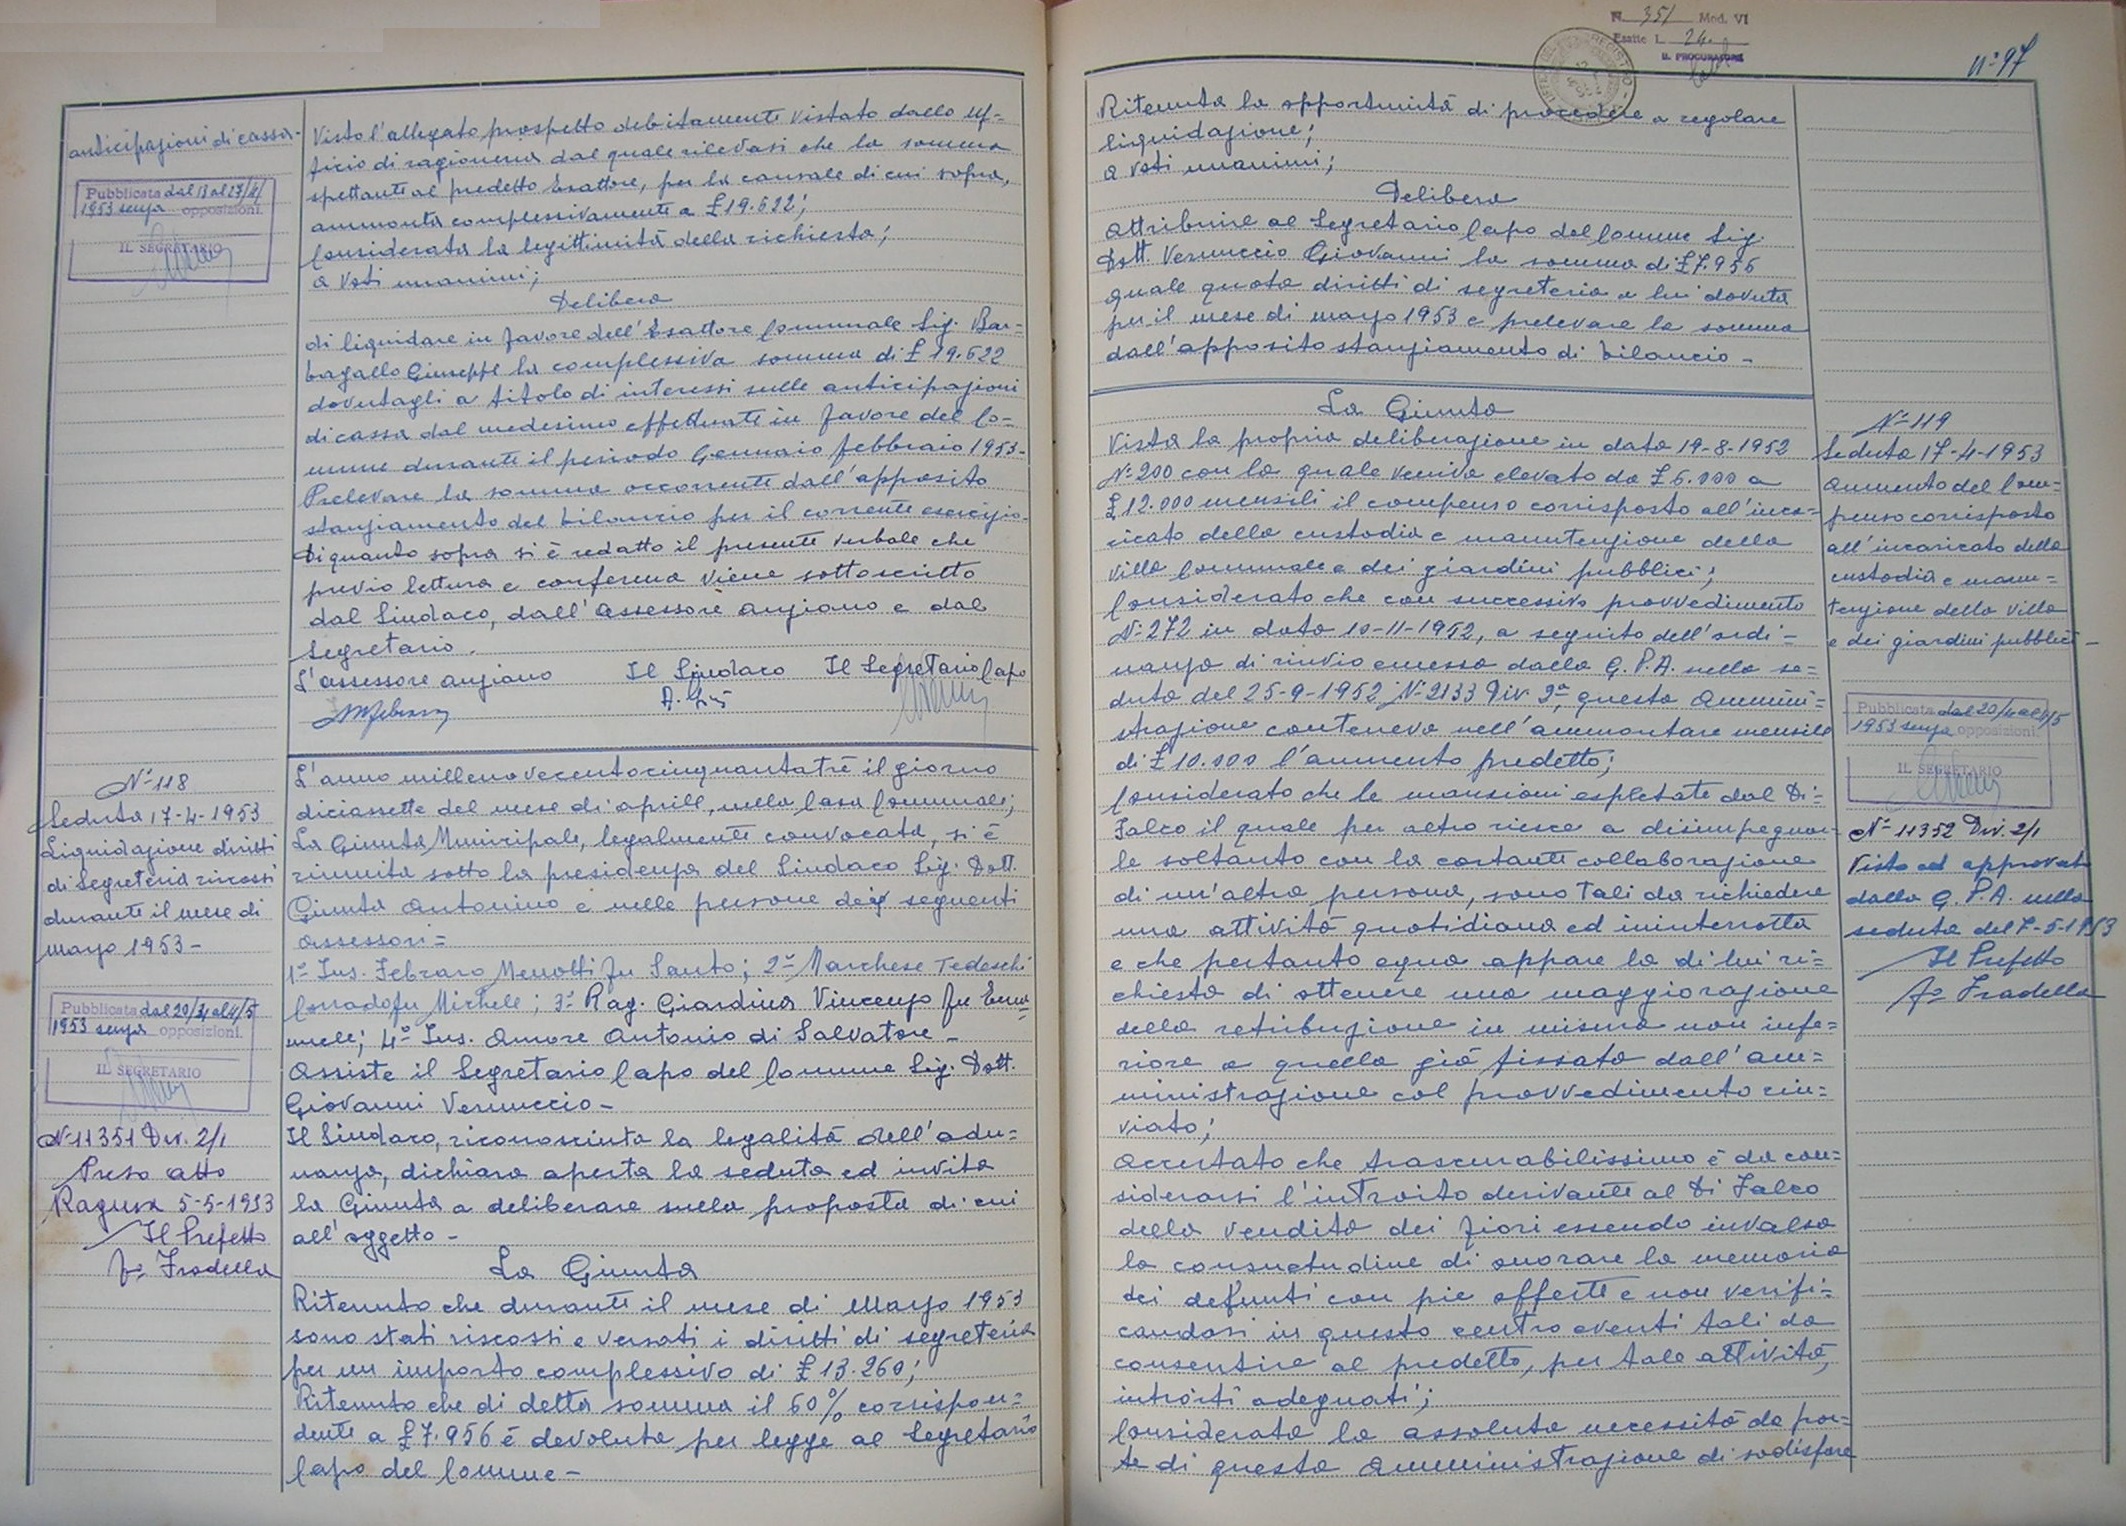 anticipazioni di cassa-
Pubblicata dal 13 al 27/4/
1953 senza opposizioni.
IL SEGRETARIO
Visto l'allegato prospetto debitamente vistato dallo Uf=
ficio di ragioneria dal quale rilevasi che la somma
spettante al predetto Esattore, per la causale di cui sopra,
ammonta complessivamente a £19.622;
Considerata la legittimità della richiesta;
a voti unanimi;
Delibera
di liquidare in favore dell'Esattore Comunale Sig. Bar=
bagallo Giuseppe la complessiva somma di £ 19.622
dovutagli a titolo di interessi sulle anticipazioni
di cassa dal medesimo effettuate in favore del Co=
mune durante il periodo Gennaio febbraio 1953-
Prelevare la somma occorrente dall'apposito
stanziamento del bilancio per il corrente esercizio-
Di quanto sopra si è redatto il presente verbale che
previo lettura e conferma viene sottoscritto
dal Sindaco, dall'assessore anziano e dal
Segretario.
L'assessore anziano Il Sindaco Il Segretario Capo
N° 118
Seduta 17-4-1953
Liquidazione diritti
di Segreteria riscossi
durante il mese di
marzo 1953-
Pubblicata dal 20/4 al 4/5
1953 senza opposizioni.
IL SEGRETARIO
N° 11351 Div. 2/1
Preso atto
Ragusa 5-5-1953
Il Prefetto
f° Fradella
L'anno millenovecentocinquantatrè il giorno
diciassette del mese di aprile, nella Casa Comunale;
La Giunta Municipale, legalmente convocata, si è
riunita sotto la presidenza del Sindaco Sig. Dott.
Giunta Antonino e nelle persone dei seguenti
assessori=
1° Ins. Febraro Menotti fu Santo; 2° Marchese Tedeschi
Corrado fu Michele; 3° Rag. Giardina Vincenzo fu Ema
nuele; 4° Ins. Amore Antonio di Salvatore-
Assiste il Segretario Capo del Comune Sig. Dott.
Giovanni Vernuccio-
Il Sindaco, riconosciuta la legalità dell'adu=
nanza, dichiara aperta la seduta ed invita
la Giunta a deliberare sulla proposta di cui
all'oggetto-
La Giunta
Ritenuto che durante il mese di Marzo 1953
sono stati riscossi e versati i diritti di segreteria
per un importo complessivo di £ 13.260;
Ritenuto che di detta somma il 60% corrispon=
dente a £7.956 è devoluta per legge al Segretario
Capo del Comune-
N. 351 Mod. VI
Esatte L. 24.
IL PROCURATORE
n° 97
Ritenuta la opportunità di procedere a regolare
liquidazione;
a voti unanimi;
Delibera
attribuire al Segretario Capo del Comune Sig.
Dott. Vernuccio Giovanni la somma di £7.956
quale quota diritti di segreteria a lui dovuta
per il mese di marzo 1953 e prelevare la somma
dall'apposito stanziamento di bilancio-
La Giunta
Vista la propria deliberazione in data 19-8-1952
N° 200 con la quale veniva elevato da £6.000 a
£12.000 mensili il compenso corrisposto all'inca=
ricato della custodia e manutenzione della
villa Comunale e dei giardini pubblici;
Considerato che con successivo provvedimento
N° 272 in data 10-11-1952, a seguito dell'ordi=
nanza di rinvio emessa dalla G.P.A. nella se=
duta del 25-9-1952 N° 2133 Div 2ª, questa Ammini=
strazione conteneva nell'ammontare mensile
di £10.000 l'aumento predetto;
Considerato che le mansioni espletate dal Di=
Falco il quale per altro riesce a disimpegnar=
le soltanto con la costante collaborazione
di un'altra persona, sono tali da richiedere
una attività quotidiana ed ininterrotta
e che pertanto equa appare la di lui ri=
chiesta di ottenere una maggiorazione
della retribuzione in misura non infe=
riore a quella già fissata dall'am=
ministrazione col provvedimento rin=
viato;
Accertato che trascurabilissimo è da con=
siderarsi l'introito derivante al Di Falco
della vendita dei fiori essendo invalsa
la consuetudine di onorare la memoria
dei defunti con pie offerte e non verifi=
candosi in questo centro eventi tali da
consentire al predetto, per tale attività,
introiti adeguati;
Considerata la assoluta necessità da par=
te di questa Amministrazione di sodisfare
N° 119
Seduta 17-4-1953
Aumento del Com=
penso corrisposto
all'incaricato della
custodia e manu=
tenzione della villa
e dei giardini pubblici-
Pubblicata dal 20/4 al 4/5
1953 senza opposizioni.
IL SEGRETARIO
N° 11352 Div. 2/1
Visto ed approvato
dalla G.P.A. nella
seduta del 7-5-1953
Il Prefetto
f° Fradella